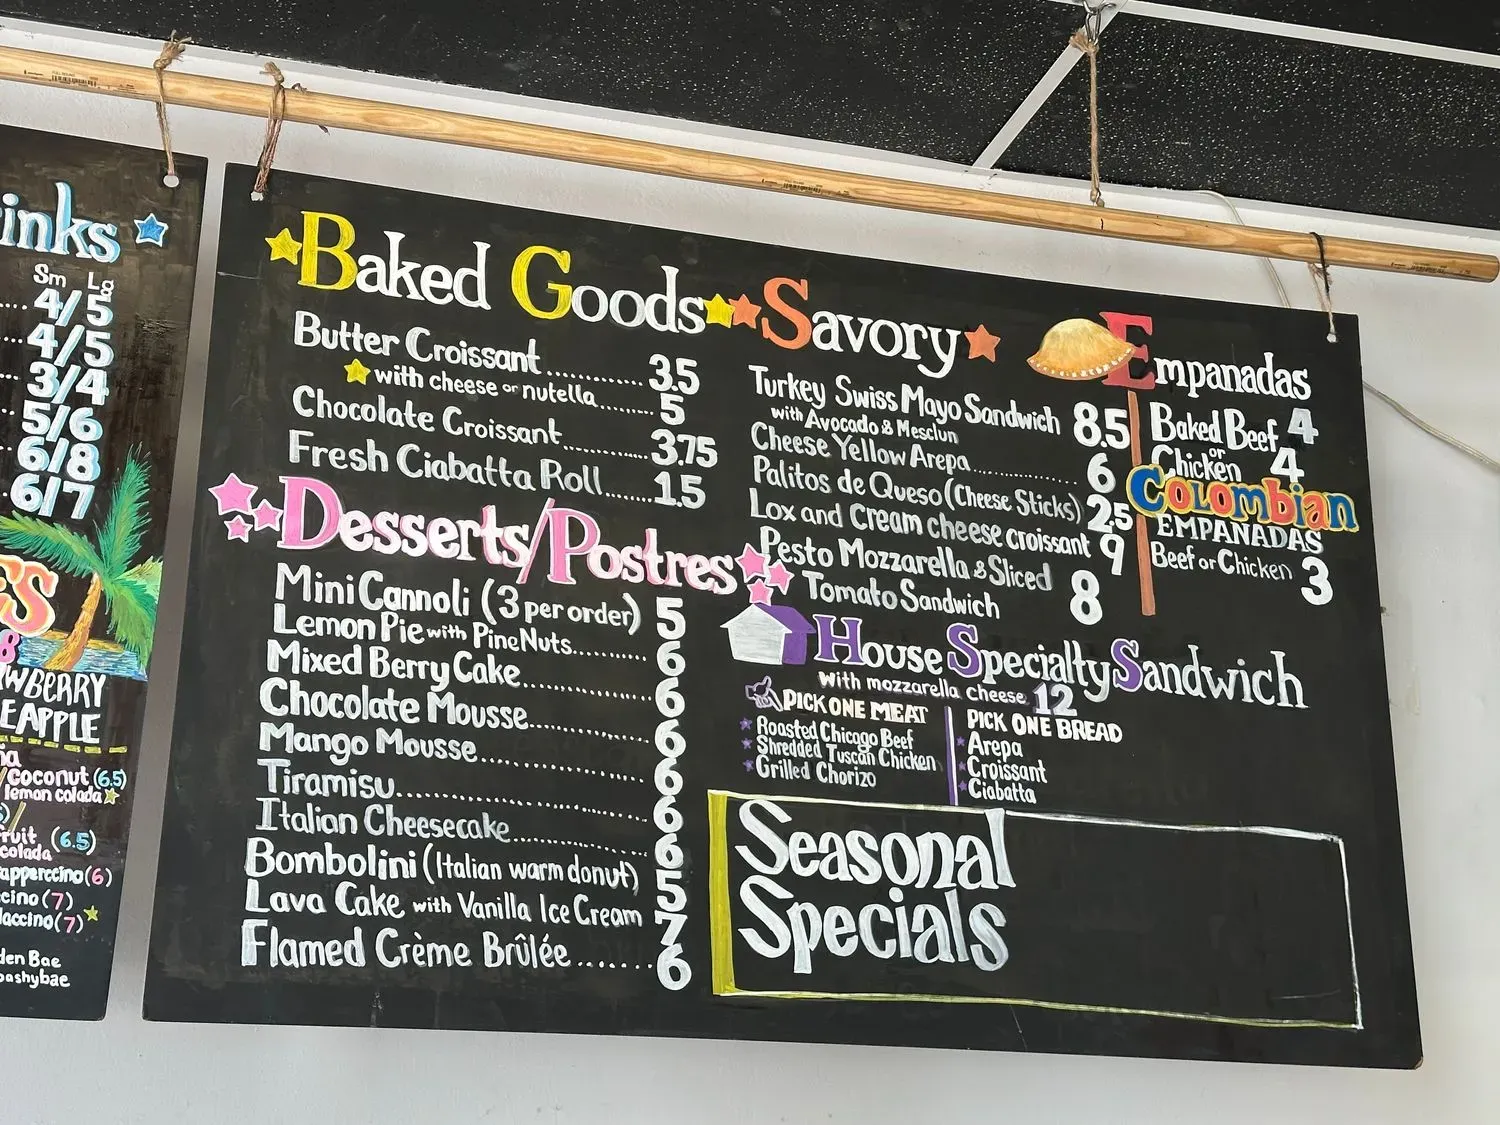 inks
Sm Lg
4/5
4/5
3/4
5/6
6/8
6/7
ES
8
WBERRY
EAPPLE
ña
coconut (6.5)
lemon colada
fruit (6.5)
colada
appuccino (6)
ccino (7)
laccino (7)
den Bae
bashybae
Baked Goods
Butter Croissant............ 3.5
with cheese or nutella......... 5
Chocolate Croissant............ 3.75
Fresh Ciabatta Roll....... 1.5
Desserts/Postres
Mini Cannoli (3 per order) 5
Lemon Pie with Pine Nuts.......... 6
Mixed Berry Cake................. 6
Chocolate Mousse................ 6
Mango Mousse.................... 6
Tiramisu............................ 6
Italian Cheesecake................ 6
Bombolini (Italian warm donut) 5
Lava Cake with Vanilla Ice Cream 7
Flamed Crème Brûlée....... 6
Savory
Turkey Swiss Mayo Sandwich 8.5
with Avocado & Mesclun
Cheese Yellow Arepa............... 6
Palitos de Queso (Cheese Sticks) 2.5
Lox and Cream cheese croissant 9
Pesto Mozzarella & Sliced
Tomato Sandwich 8
Empanadas
Baked Beef 4
or
Chicken 4
Colombian
EMPANADAS
Beef or Chicken 3
House Specialty Sandwich
with mozzarella cheese 12
PICK ONE MEAT
Roasted Chicago Beef
Shredded Tuscan Chicken
Grilled Chorizo
PICK ONE BREAD
Arepa
Croissant
Ciabatta
Seasonal
Specials